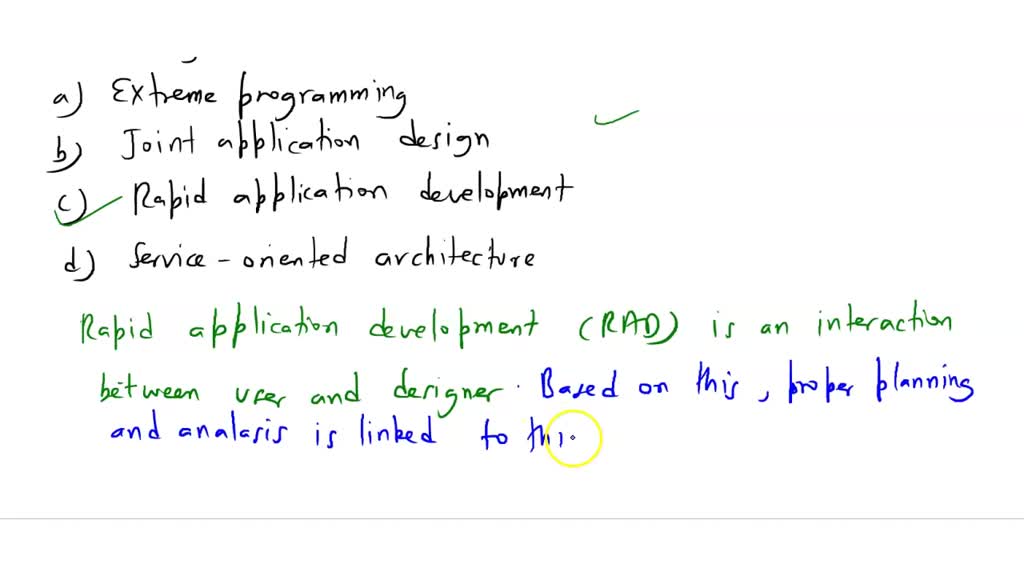 a) Extreme programming
b) Joint application design
c) Rapid application development
d) Service-oriented architecture
Rapid application development (RAD) is an interaction
between user and designer. Based on this, proper planning
and analasis is linked to this.